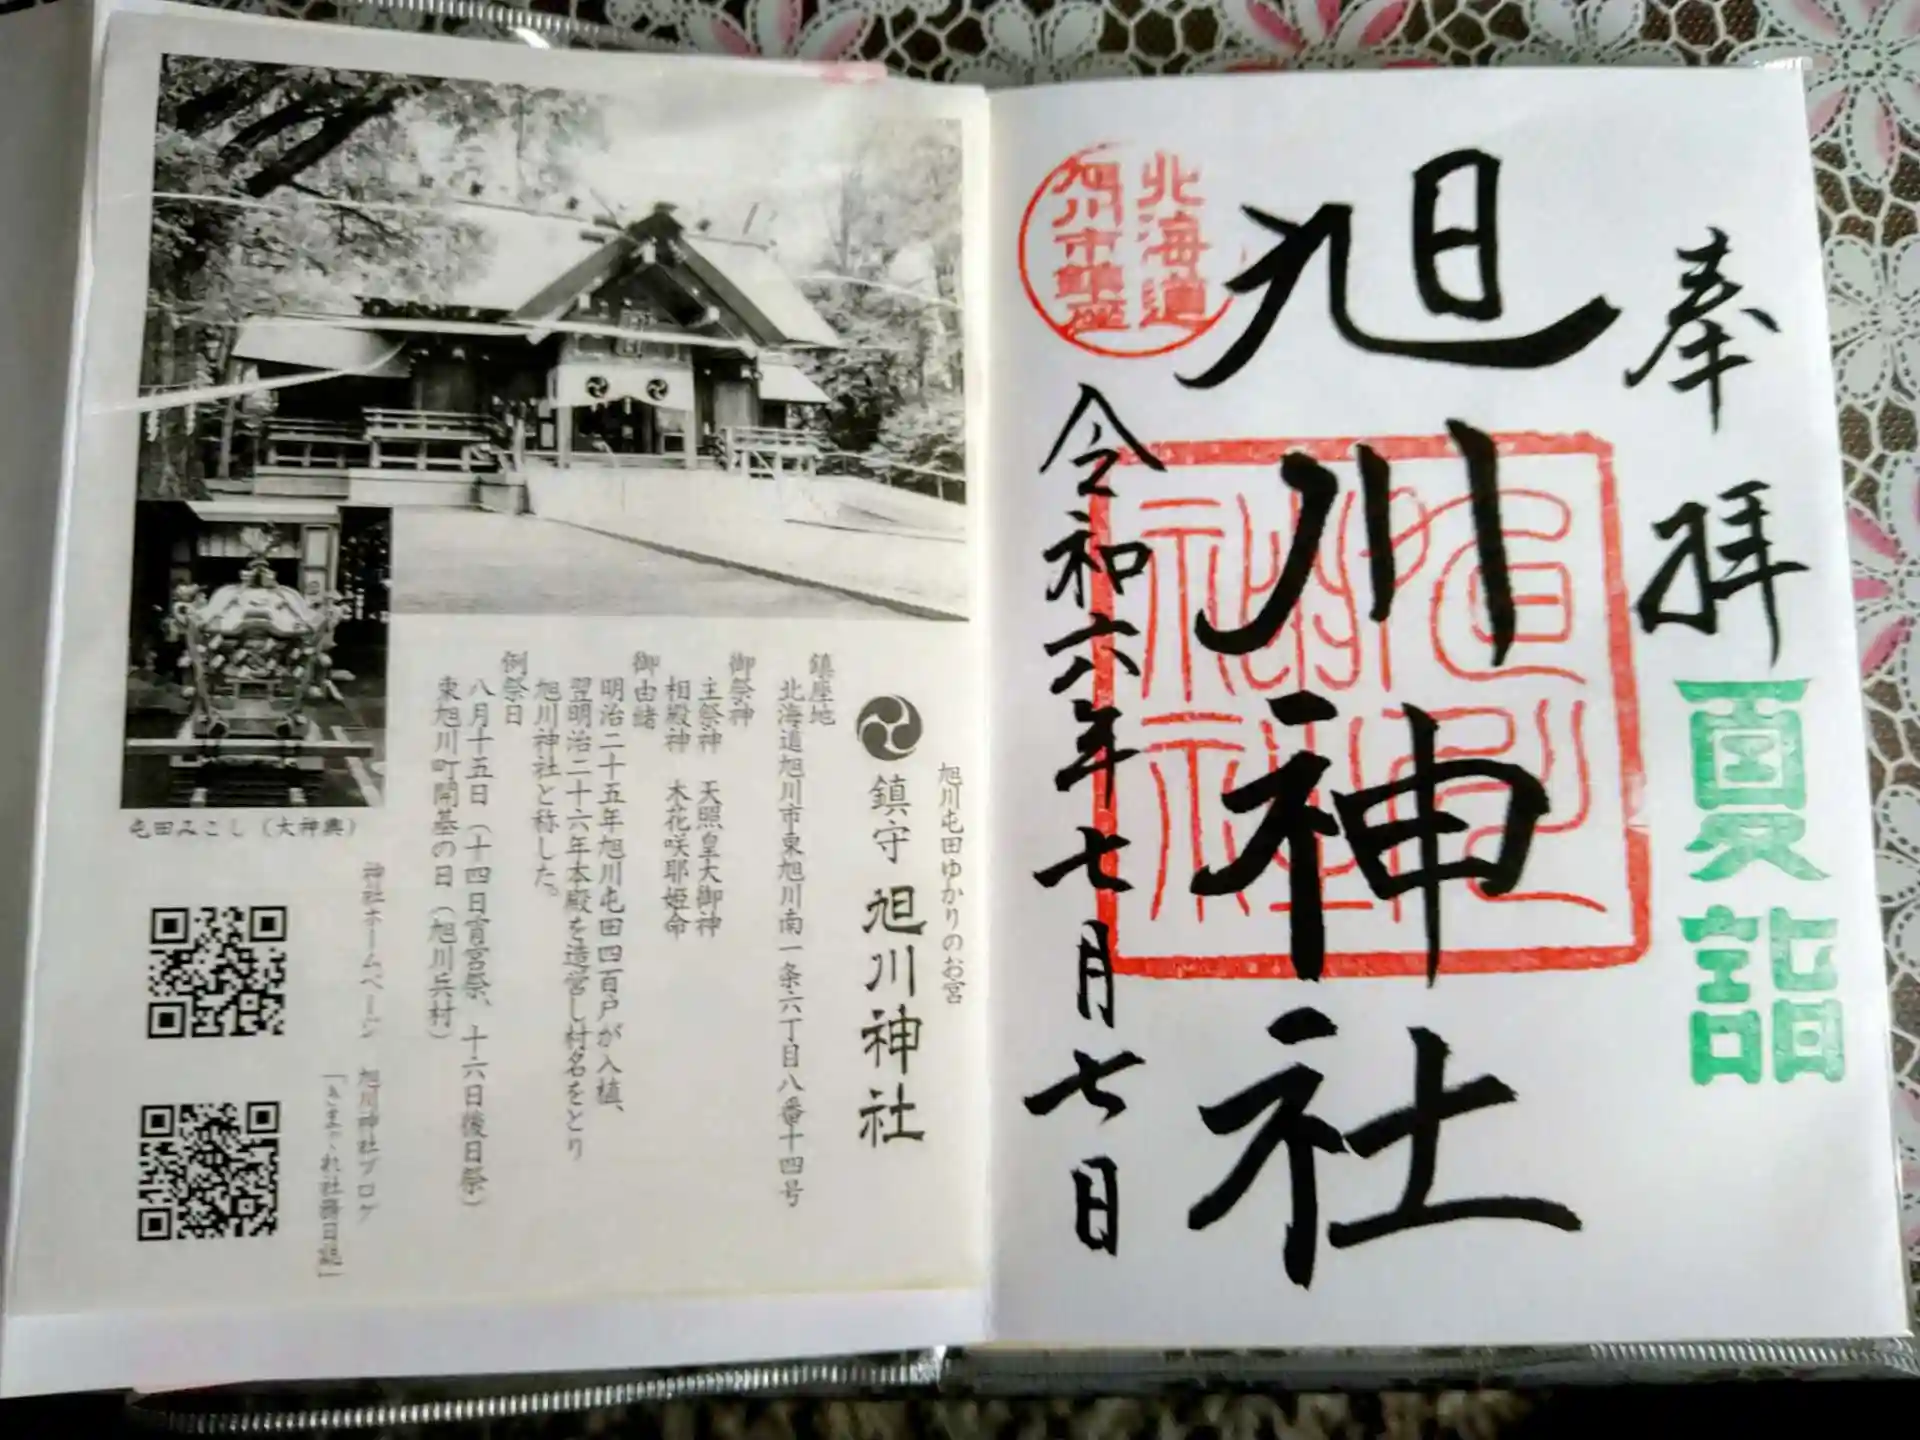 奉拝
夏詣
旭川神社
北海道
旭川市鎮座
令和六年七月七日
旭川神社
旭川屯田ゆかりのお宮
鎮守 旭川神社
鎮座地
北海道旭川市東旭川南一条六丁目八番十四号
御祭神
主祭神 天照皇大御神
相殿神 木花咲耶姫命
御由緒
明治二十五年旭川屯田四百戸が入植、
翌明治二十六年本殿を造営し村名をとり
旭川神社と称した。
例祭日
八月十五日(十四日宵宮祭、十六日後日祭)
東旭川町開基の日(旭川兵村)
神社ホームページ
旭川神社ブログ
「きまぐれ社務日誌」
屯田みこし(大神輿)